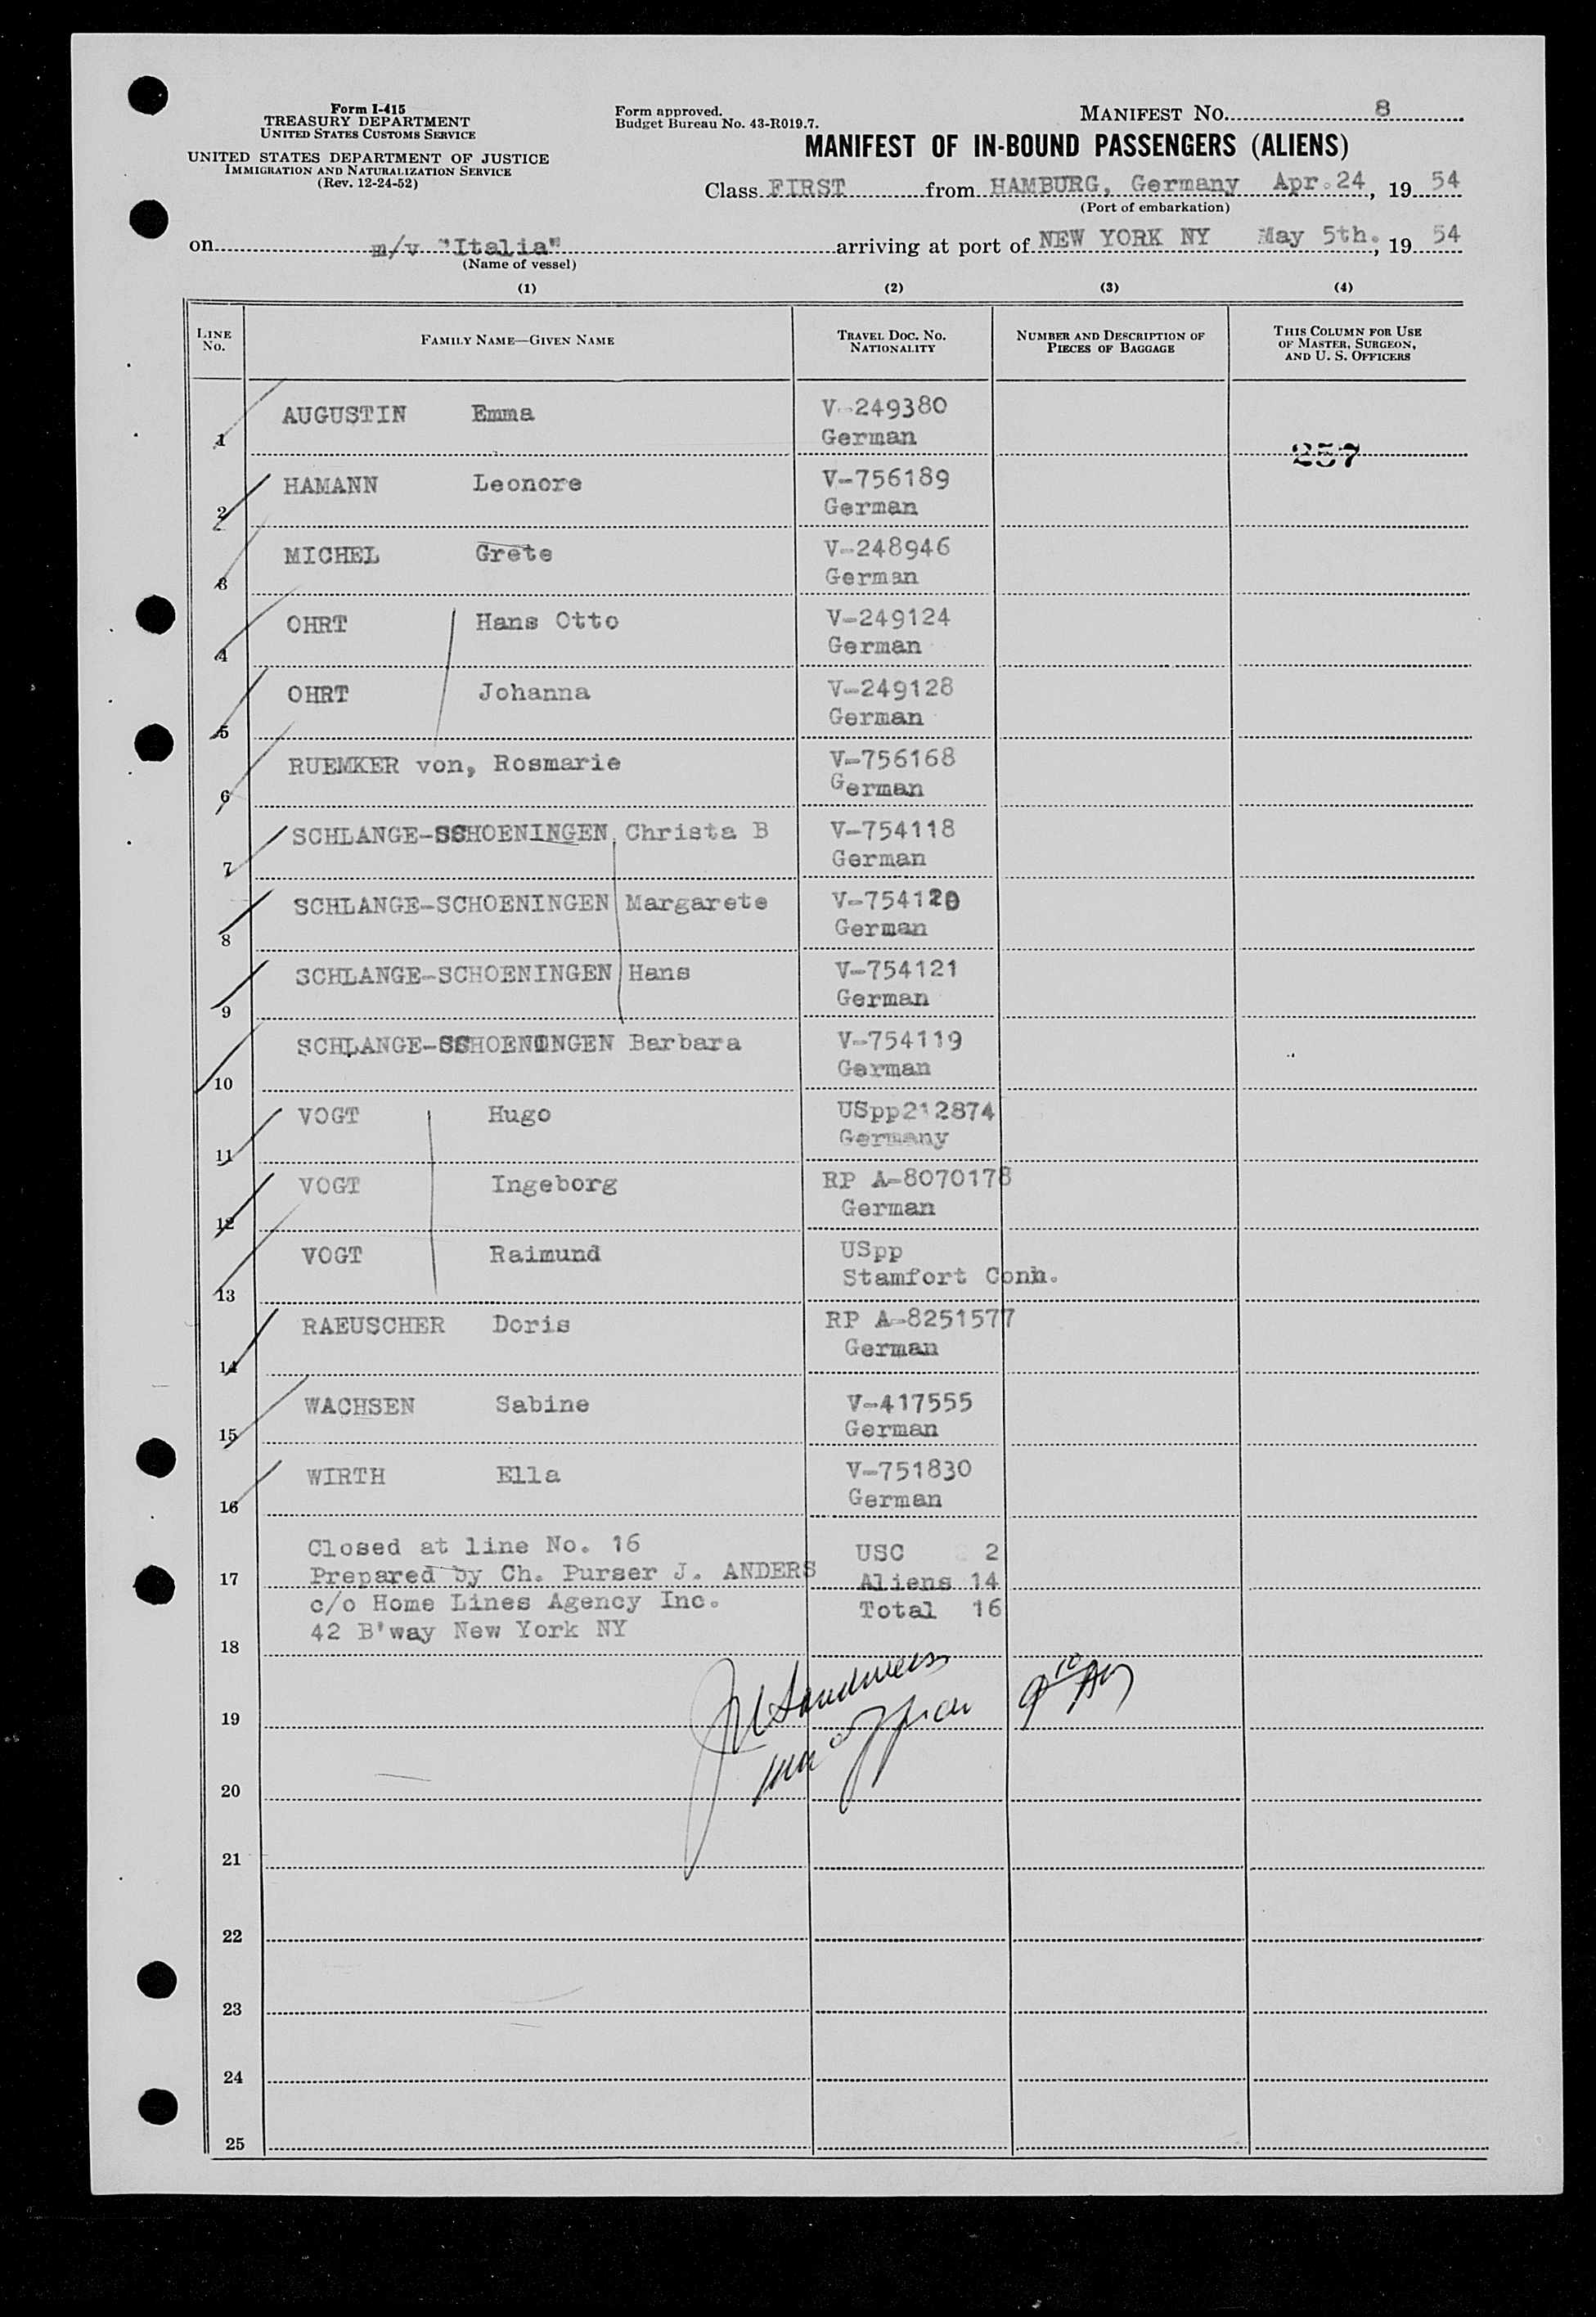 Form I-415
TREASURY DEPARTMENT
UNITED STATES CUSTOMS SERVICE
UNITED STATES DEPARTMENT OF JUSTICE
IMMIGRATION AND NATURALIZATION SERVICE
(Rev. 12-24-52)
Form approved.
Budget Bureau No. 43-R019.7.
MANIFEST No. 8
MANIFEST OF IN-BOUND PASSENGERS (ALIENS)
Class FIRST from HAMBURG, Germany Apr.24, 19 54
(Port of embarkation)
on m/v "Italia" arriving at port of NEW YORK NY May 5th., 19 54
(Name of vessel)
(1) (2) (3) (4)
LINE No. FAMILY NAME—GIVEN NAME TRAVEL DOC. No. NATIONALITY NUMBER AND DESCRIPTION OF PIECES OF BAGGAGE THIS COLUMN FOR USE OF MASTER, SURGEON, AND U. S. OFFICERS
AUGUSTIN Emma V-249380
1 German
257
HAMANN Leonore V-756189
2 German
MICHEL Grete V-248946
3 German
OHRT Hans Otto V-249124
4 German
OHRT Johanna V-249128
5 German
RUEMKER von, Rosmarie V-756168
6 German
SCHLANGE-SCHOENINGEN Christa B V-754118
7 German
SCHLANGE-SCHOENINGEN Margarete V-754120
8 German
SCHLANGE-SCHOENINGEN Hans V-754121
9 German
SCHLANGE-SCHOENINGEN Barbara V-754119
10 German
VOGT Hugo USpp212874
11 Germany
VOGT Ingeborg RP A-8070178
12 German
VOGT Raimund USpp
13 Stamfort Conn.
RAEUSCHER Doris RP A-8251577
14 German
WACHSEN Sabine V-417555
15 German
WIRTH Ella V-751830
16 German
Closed at line No. 16 USC 2
17 Prepared by Ch. Purser J. ANDERS Aliens 14
c/o Home Lines Agency Inc. Total 16
18 42 B'way New York NY
19
20
21
22
23
24
25